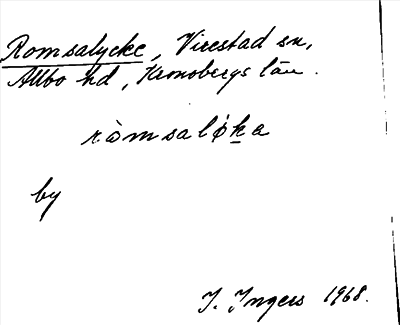 Romsalycke, Virestad sn,
Allbo hd, Kronobergs län.
ròmsaløḵa
by
I. Ingers 1968.